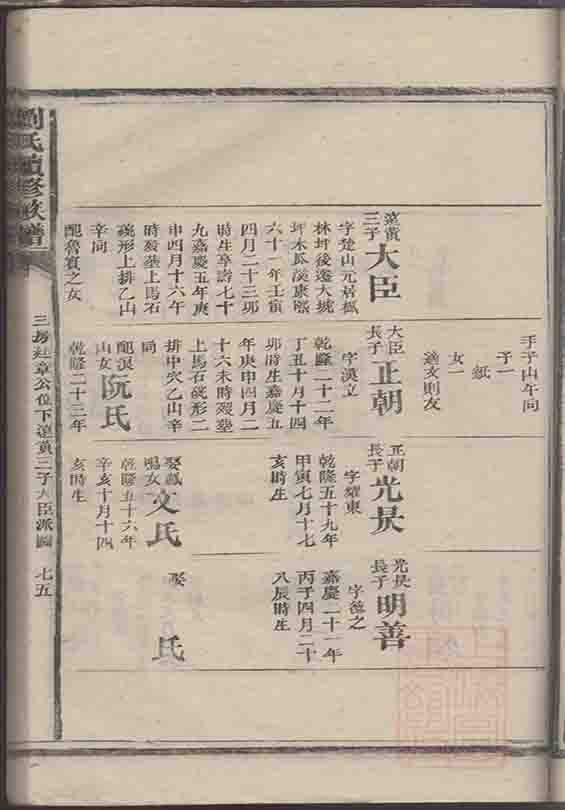 壬子山午向
子一
紘
女一
適亥則友
達貴三子
大臣
字楚山元居楓
林坪後遷大坡
坪木瓜溪康熙
六十一年壬寅
四月二十三卯
時生享壽七十
九嘉慶五年庚
申四月十六午
時歿塋上馬石
硫形上排乙山
辛向
配魯賓之女
大臣長子
正朝
字漢立
乾隆二十二年
丁丑十月十四
卯時生嘉慶五
年庚申四月二
十六未時歿塋
上馬石硫形二
排中穴乙山辛
向
配
山女
阮氏
乾隆二十三年
正朝長子
光昃
字耀東
乾隆五十九年
甲寅七月十七
亥時生
娶
鳴女
文氏
乾隆五十六年
辛亥十月十四
亥時生
光昃長子
明善
字德之
嘉慶二十一年
丙子四月二十
八辰時生
娶
氏
劉氏續修族譜
三房廷章公位下達貴三子大臣派圖
七五